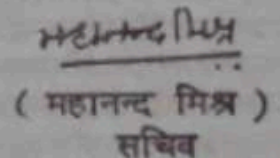 महानन्द मिश्र
( महानन्द मिश्र )
सचिव